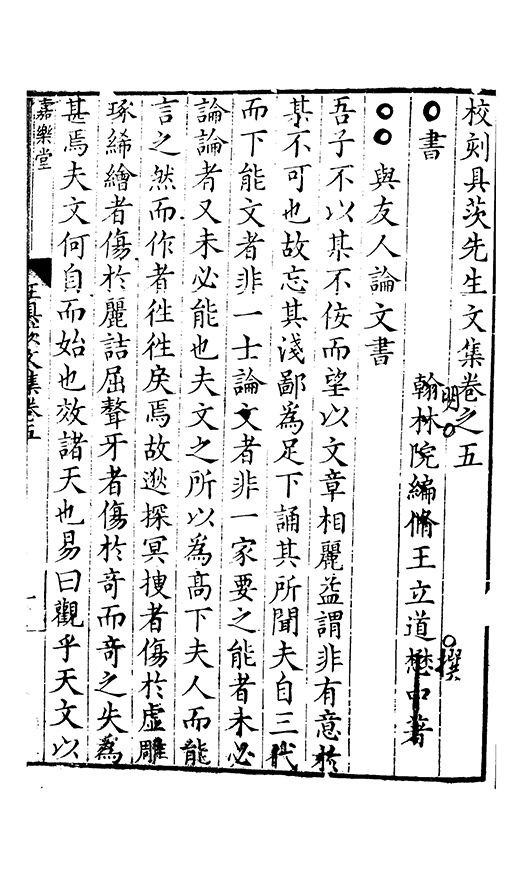 校刻具茨先生文集卷之五
明
翰林院編脩王立道懋中著
撰
書
與友人論文書
吾子不以某不佞而望以文章相麗益謂非有意於
某不可也故忘其淺鄙為足下誦其所聞夫自三代
而下能文者非一士論文者非一家要之能者未必
論論者又未必能也夫文之所以為高下夫人而能
言之然而作者徃徃戾焉故逖探冥捜者傷於虛雕
琢絺繪者傷於麗詰屈聱牙者傷於奇而奇之失為
甚焉夫文何自而始也效諸天也易曰觀乎天文以
具茨文集卷五
嘉樂堂